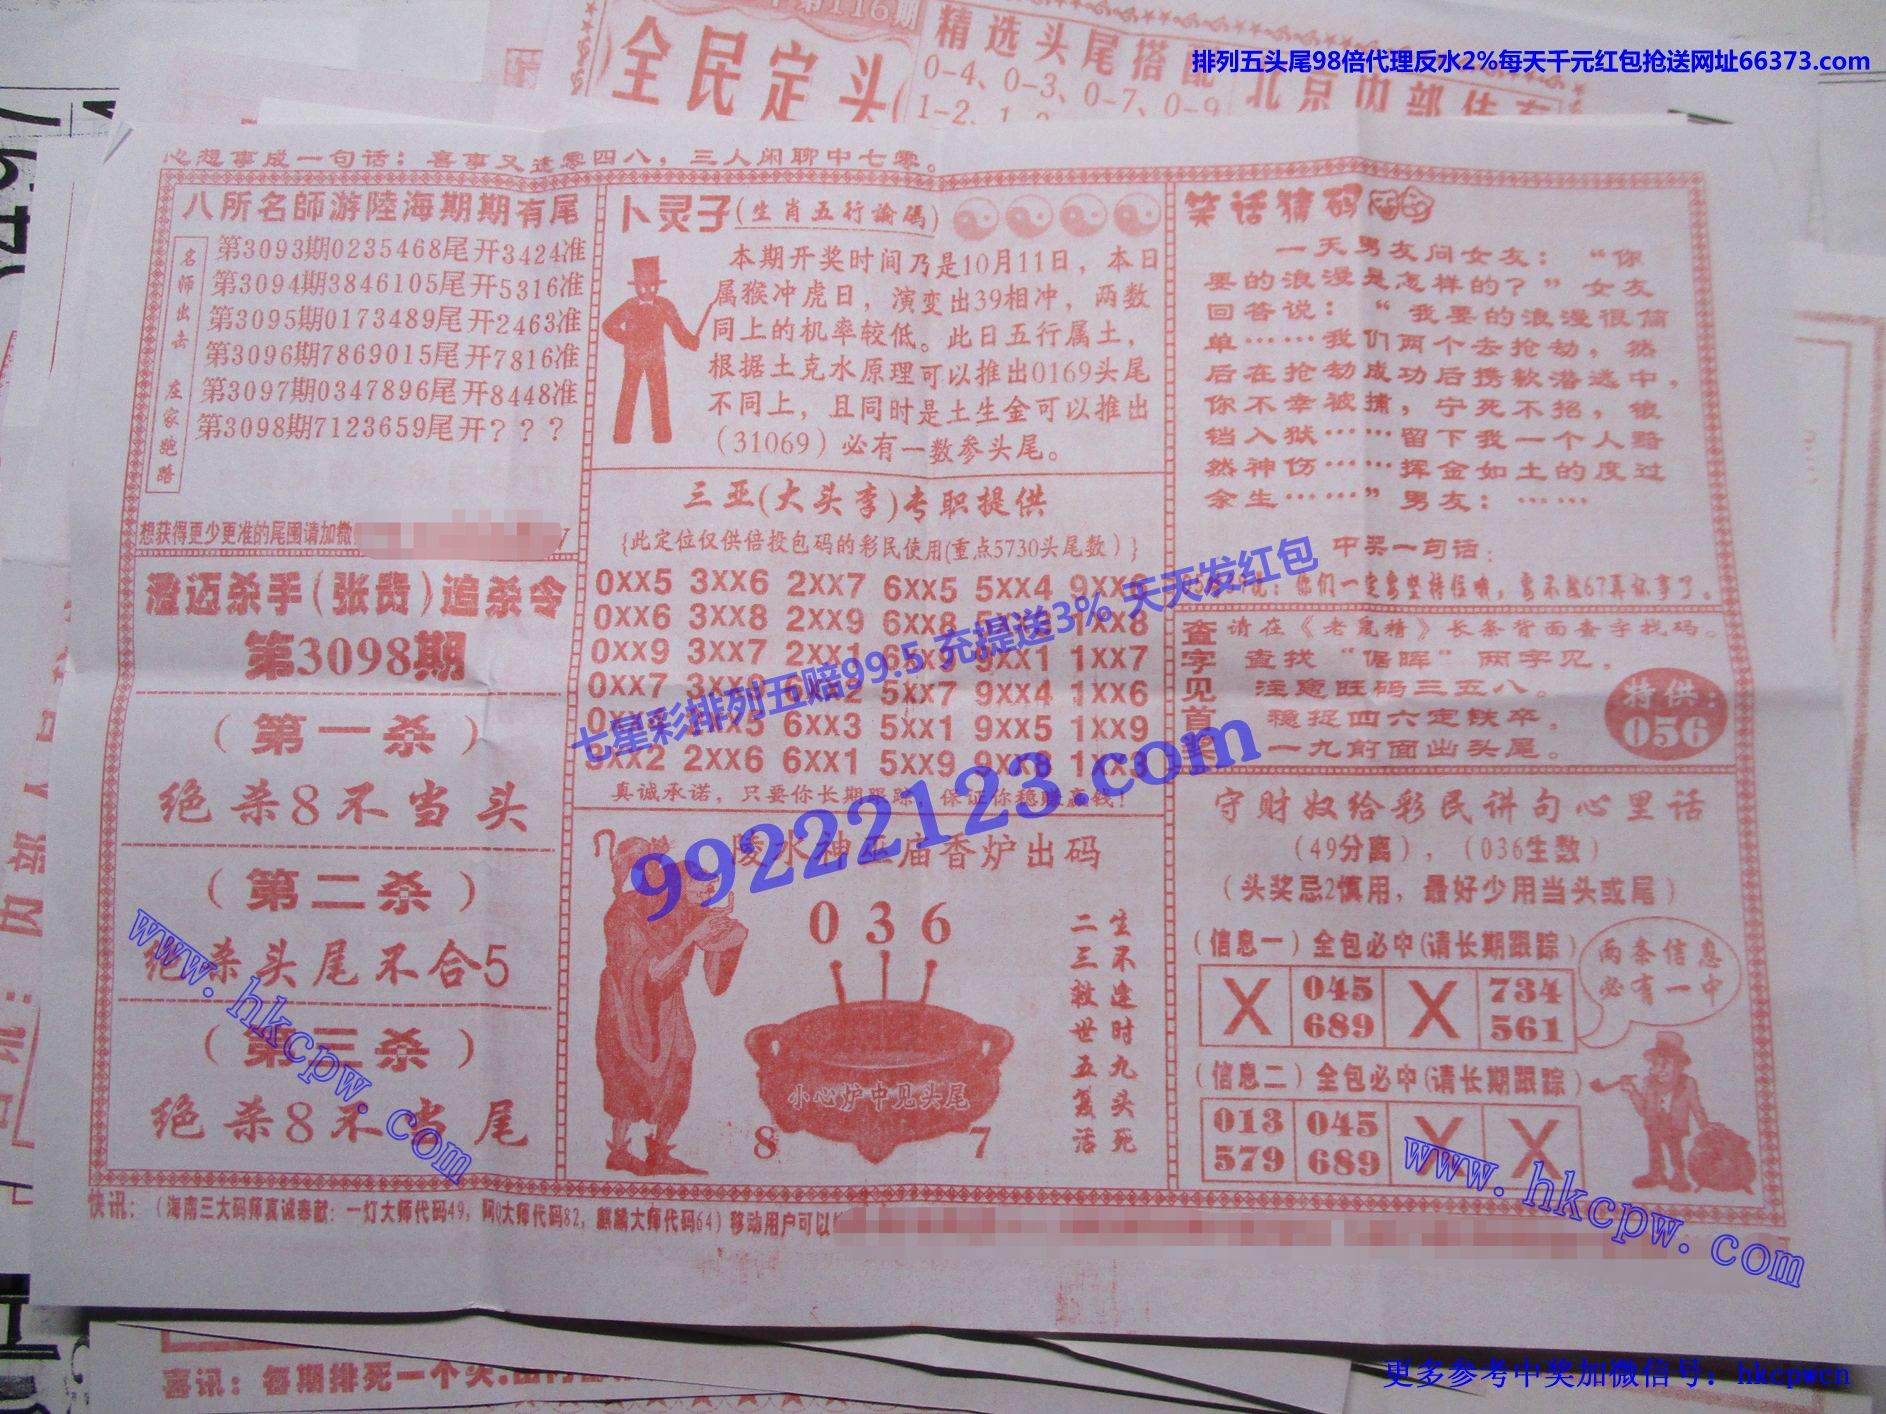 第116期
全民定头
精选头尾搭配
0-4、0-3、0-7、0-9
排列五头尾98倍代理反水2%每天千元红包抢送网址66373.com
心想事成一句话：喜事又逢零四八，三人闲聊中七零。
八所名師游陸海期期有尾
名师出击 庄家跑路
第3093期0235468尾开3424准
第3094期3846105尾开5316准
第3095期0173489尾开2463准
第3096期7869015尾开7816准
第3097期0347896尾开8448准
第3098期7123659尾开？？？
想获得更少更准的尾围请加微
澄迈杀手(张贵)追杀令
第3098期
（第一杀）
绝杀8不当头
（第二杀）
绝杀头尾不合5
（第三杀）
绝杀8不当尾
卜灵子(生肖五行論碼)
本期开奖时间乃是10月11日，本日
属猴冲虎日，演变出39相冲，两数
同上的机率较低。此日五行属土，
根据土克水原理可以推出0169头尾
不同上，且同时是土生金可以推出
（31069）必有一数参头尾。
三亚(大头李)专职提供
{此定位仅供倍投包码的彩民使用(重点5730头尾数）}
0XX5 3XX6 2XX7 6XX5 5XX4
0XX6 3XX8 2XX9 6XX8 1XX8
0XX9 3XX7 2XX1 1XX7
0XX7 5XX7 9XX4 1XX6
6XX3 5XX1 9XX5 1XX9
2XX6 6XX1 5XX9 9XX8 1XX3
真诚承诺，只要你长期跟踪，保证你稳赚赢钱！
陵水神巫庙香炉出码
0 3 6
小心炉中见头尾
8 7
生不逢时九头死
二三救世五复活
笑话猜码
一天男友问女友：“你
要的浪漫是怎样的？”女友
回答说：“我要的浪漫很简
单……我们两个去抢劫，然
后在抢劫成功后携款潜逃中，
你不幸被捕，宁死不招，锒
铛入狱……留下我一个人黯
然神伤……挥金如土的度过
余生……”男友：……
中奖一句话：
你们一定要坚持住哦，
查字见首奖
请在《老鼠精》长条背面查字找码
查找“倨晖”两字见，
注意旺码三五八。
稳捉四六定铁卒，
一九前面出头尾。
特供：
056
守财奴给彩民讲句心里话
（49分离），（036生数）
（头奖忌2慎用，最好少用当头或尾）
（信息一）全包必中(请长期跟踪)
X 045 X 734
689 561
两条信息
必有一中
（信息二）全包必中(请长期跟踪)
013 045 X X
579 689
快讯：（海南三大码师真诚奉献：一灯大师代码49，阿Q大师代码82，麒麟大师代码64）移动用户可以
喜讯：每期排死一个头
七星彩排列五赔99.5 充提送3% 天天发红包
99222123.com
www.hkcpw.com
www.hkcpw.com
更多参考中奖加微信号：hkcpwcn